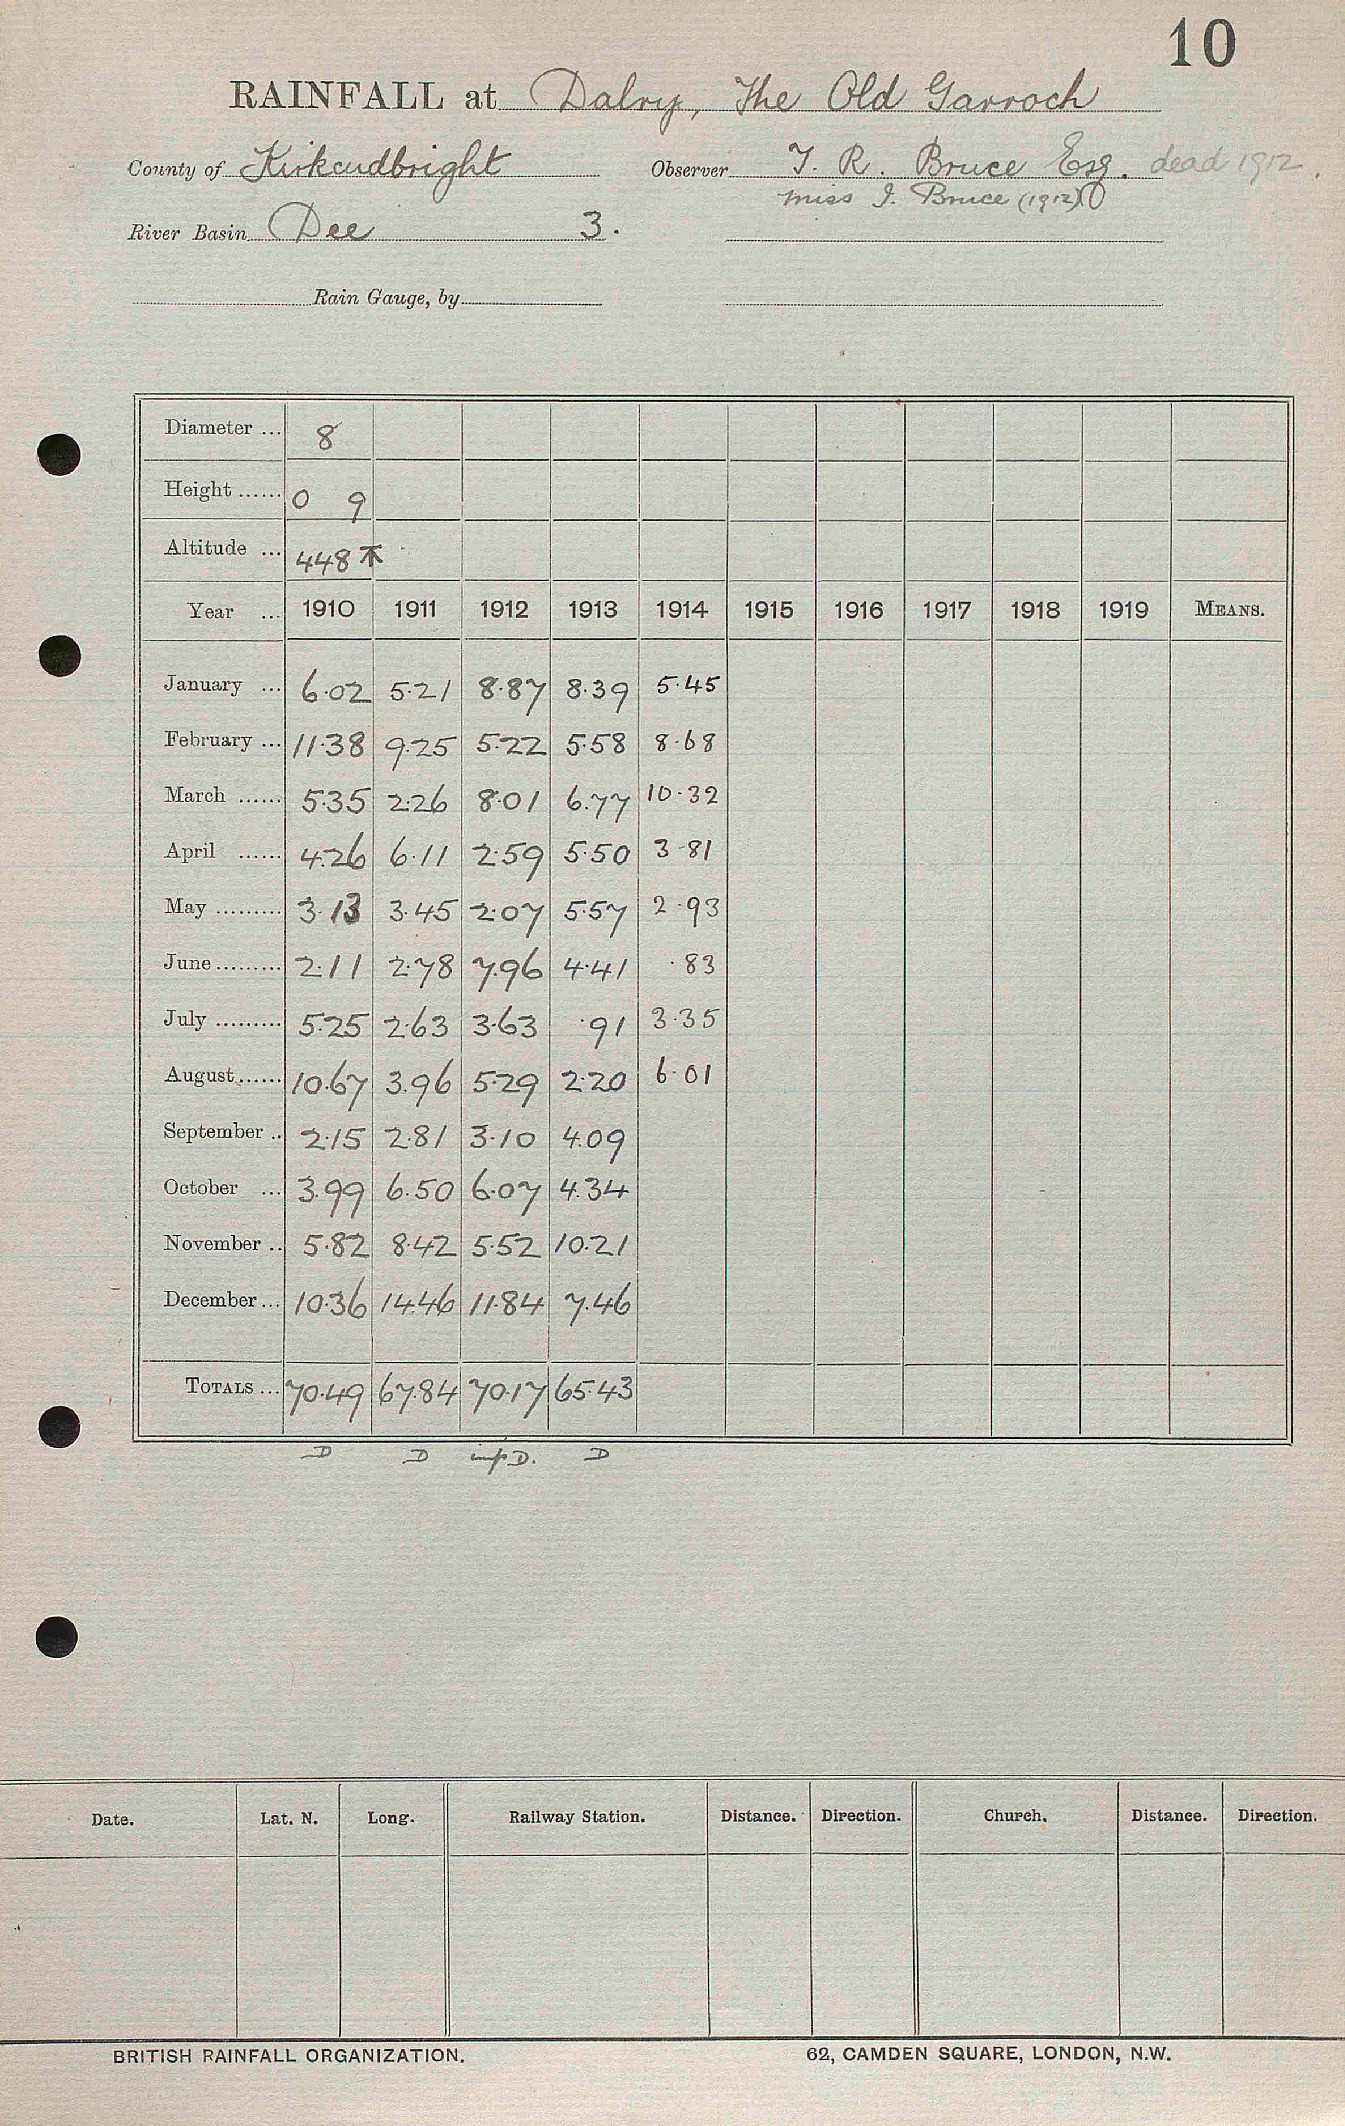 10
RAINFALL at Dalry, The Old Garroch
County of Kirkcudbright Observer T. R. Bruce Esq. dead 1912.
Miss J. Bruce (1912)
River Basin Dee 3.
Rain Gauge, by
Diameter ... 8
Height ...... 0 9
Altitude ... 448
Year ... 1910 1911 1912 1913 1914 1915 1916 1917 1918 1919 MEANS.
January ... 6.02 5.21 8.87 8.39 5.45
February ... 11.38 9.25 5.22 5.58 8.68
March ...... 5.35 2.26 8.01 6.77 10.32
April ...... 4.26 6.11 2.59 5.50 3.81
May ......... 3.13 3.45 2.07 5.57 2.93
June ......... 2.11 2.78 7.96 4.41 .83
July ......... 5.25 2.63 3.63 .91 3.35
August ...... 10.67 3.96 5.29 2.20 6.01
September .. 2.15 2.81 3.10 4.09
October ... 3.99 6.50 6.07 4.34
November .. 5.82 8.42 5.52 10.21
December ... 10.36 14.46 11.84 7.46
TOTALS ... 70.49 67.84 70.17 65.43
D D imp D. D
Date. Lat. N. Long. Railway Station. Distance. Direction. Church. Distance. Direction.
BRITISH RAINFALL ORGANIZATION. 62, CAMDEN SQUARE, LONDON, N.W.